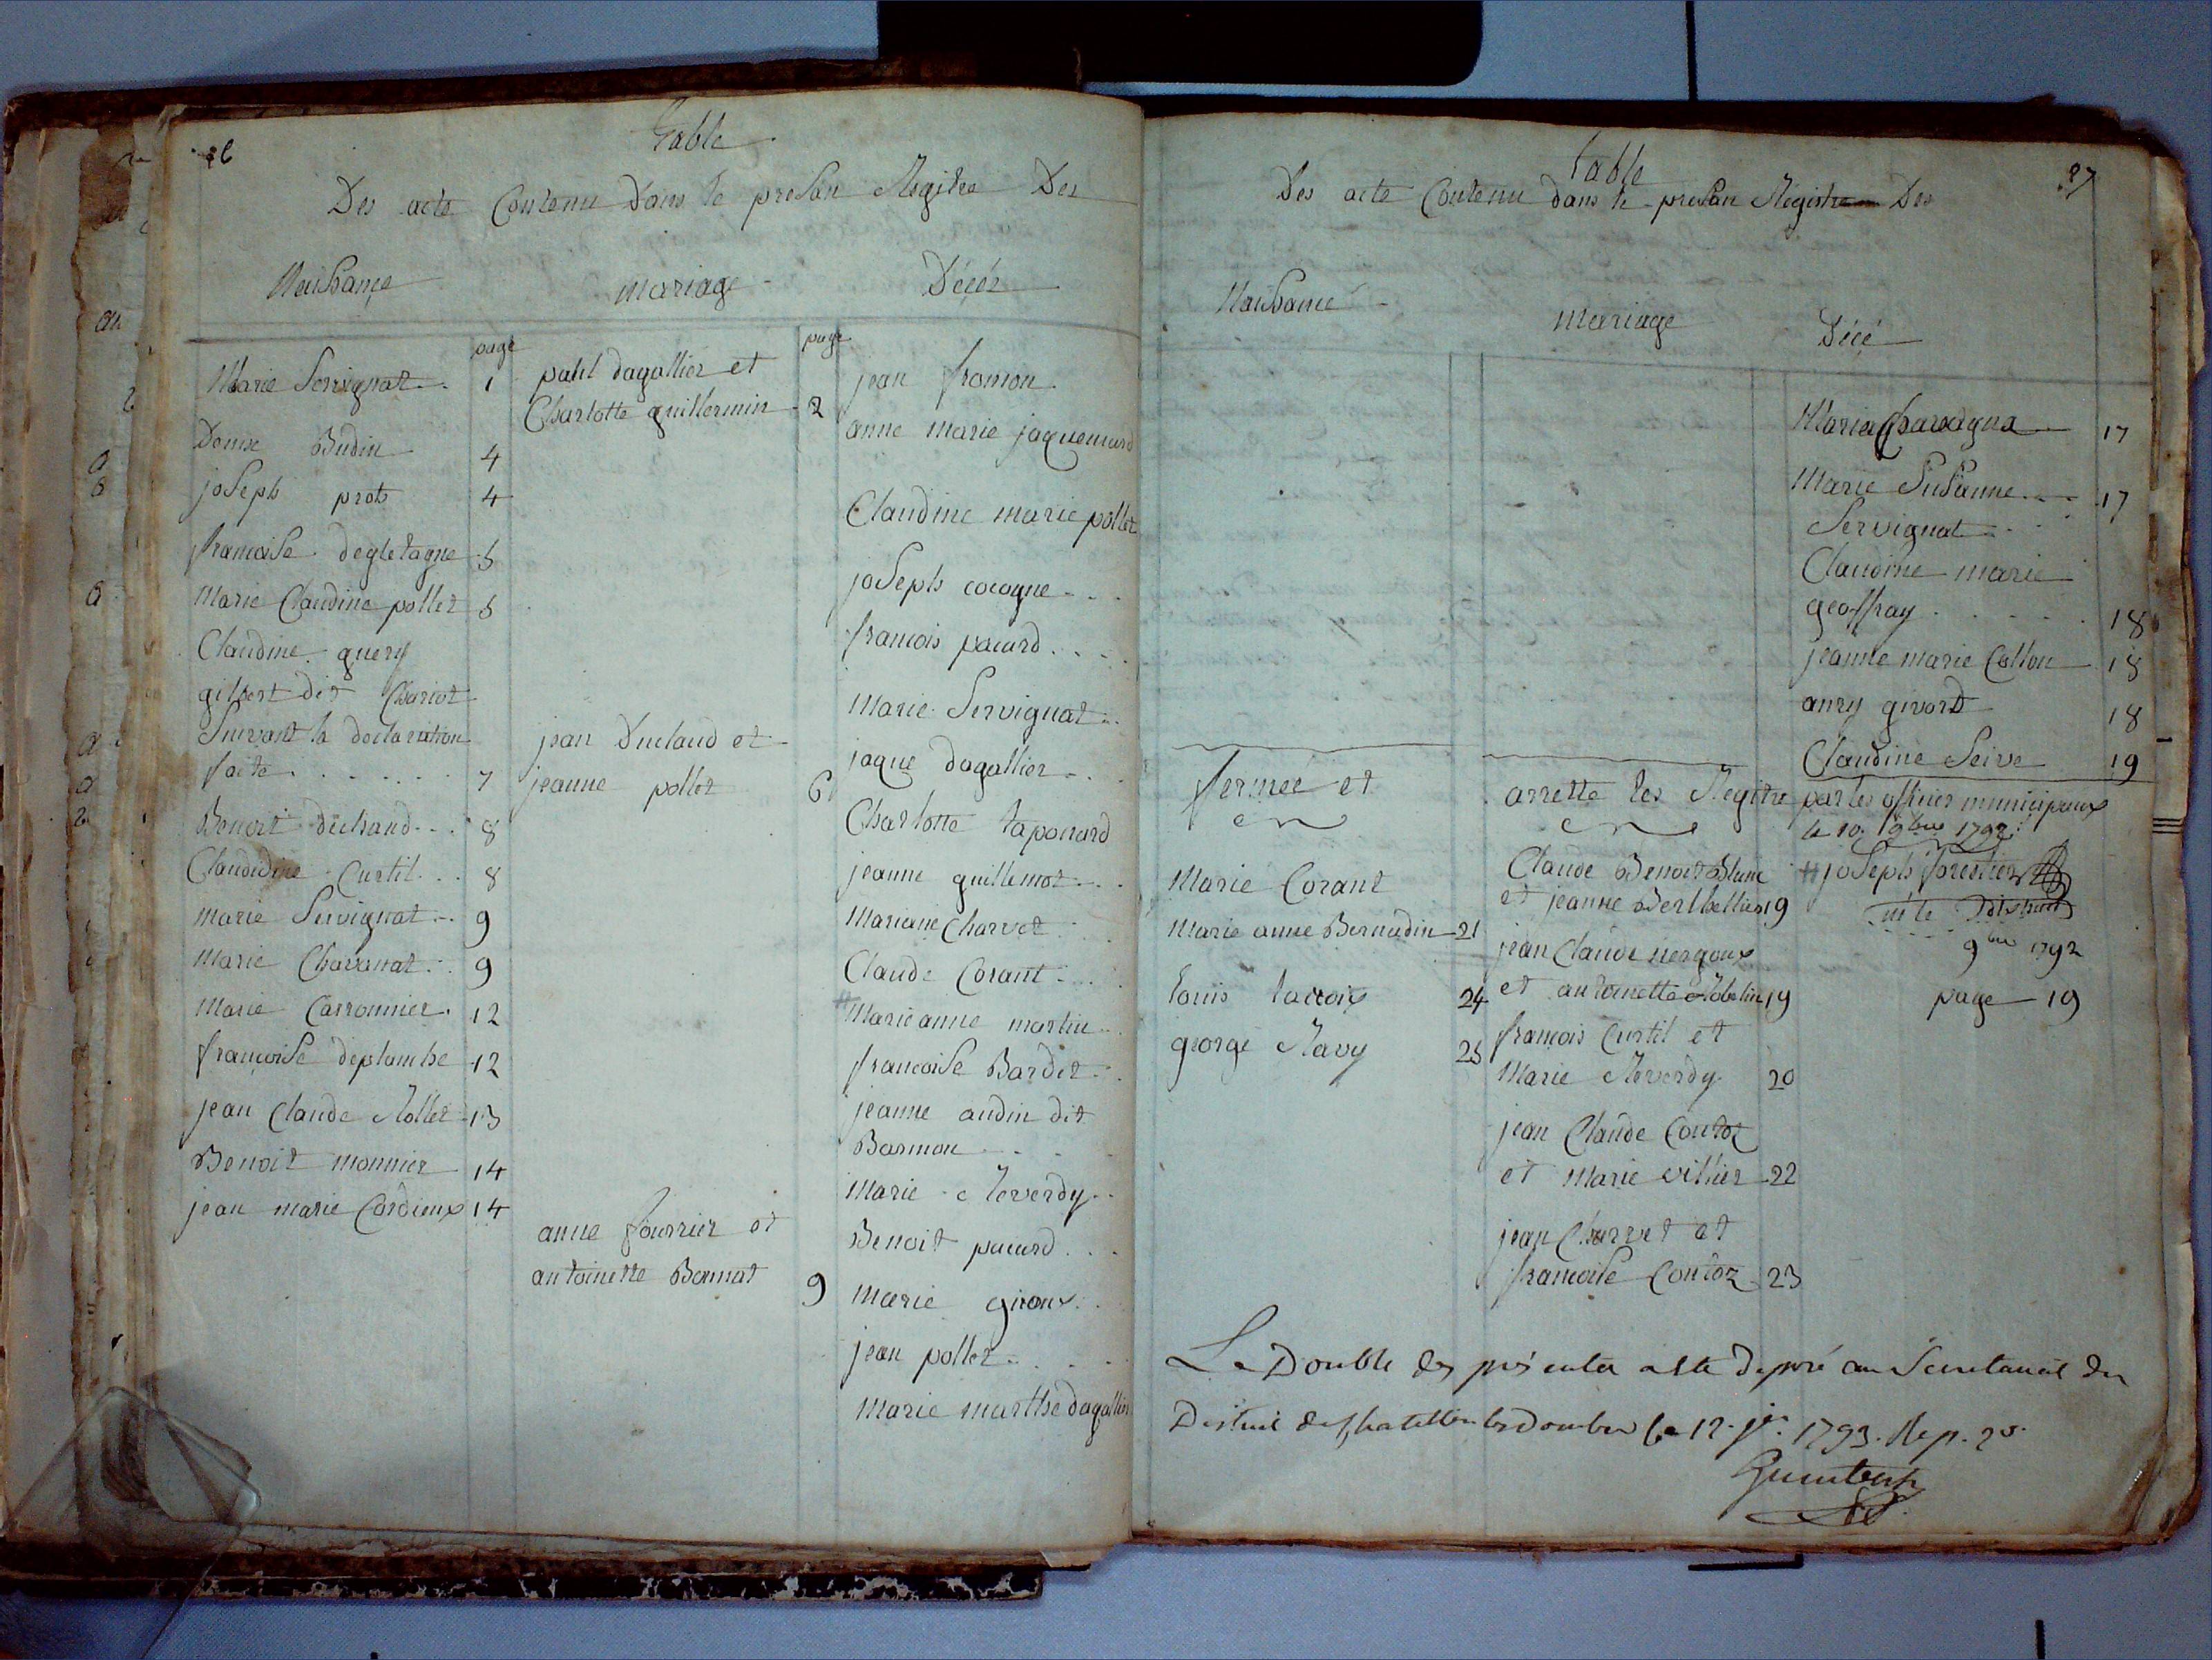 Table
Des acte Contenu Dans le presan Regitre Des
Naissance
mariage
Décés
page
page
Marie Servignat 1
Denise Budin 4
joseph prots 4
francoise degletagne 5
Marie Claudine pollet 5
Claudine guery
gilbert dit Chariot
Suivant la declaration
faite 7
Benoit duchaud 8
Claudidine Curtil 8
marie Servignat 9
Marie Chavanat 9
Marie Carronnier 12
francoise deplanche 12
jean Claude Rollet 13
Benoit monnier 14
jean marie Cordieux 14
paul dagallier et
Charlotte guillermin 2
jean Duclaud et
jeanne pollet 6
anne fourrier et
antoinette Bonnat 9
jean fromon
anne marie jaquemard
Claudine marie pollet
joseph cocogne
francois pacard
Marie Servignat
jaque dagallier
Charlotte taponard
jeanne guillemot
Mariane Charvet
Claude Corant
Marie anne martin
francoise Bardet
jeanne audin dit
Barmon
Marie Reverdy
Benoit pacard
Marie giroux
jean pollet
marie marthe dagallier
Table
27
Des acte Contenu dans le presan Régistre Des
Naissance
mariage
Décé
17
Marie Susanne 17
Servignat
Claudine marie
geoffray 18
jeanne marie Collon 18
anry givord 18
Claudine Seive 19
fermee et arrette les Regitre par les officier municipaux
le 10 9bre 1792
joseph forestier
9bre 1792
page 19
Marie Corant
Marie anne Bernudin 21
louis lacroix 24
george Ravy 25
Claude Benoit Blanc
et jeanne Berthellier 19
jean Claude nergoux
et antoinette Robelin 19
francois Curtil et
Marie Reverdy 20
jean Claude Coutoz
et Marie villier 22
jean Charvet et
francoise Contoz 23
Le Double des présentes a été déposé au Secretariat du
District de Chatillon les Dombes le 12 jer 1793.